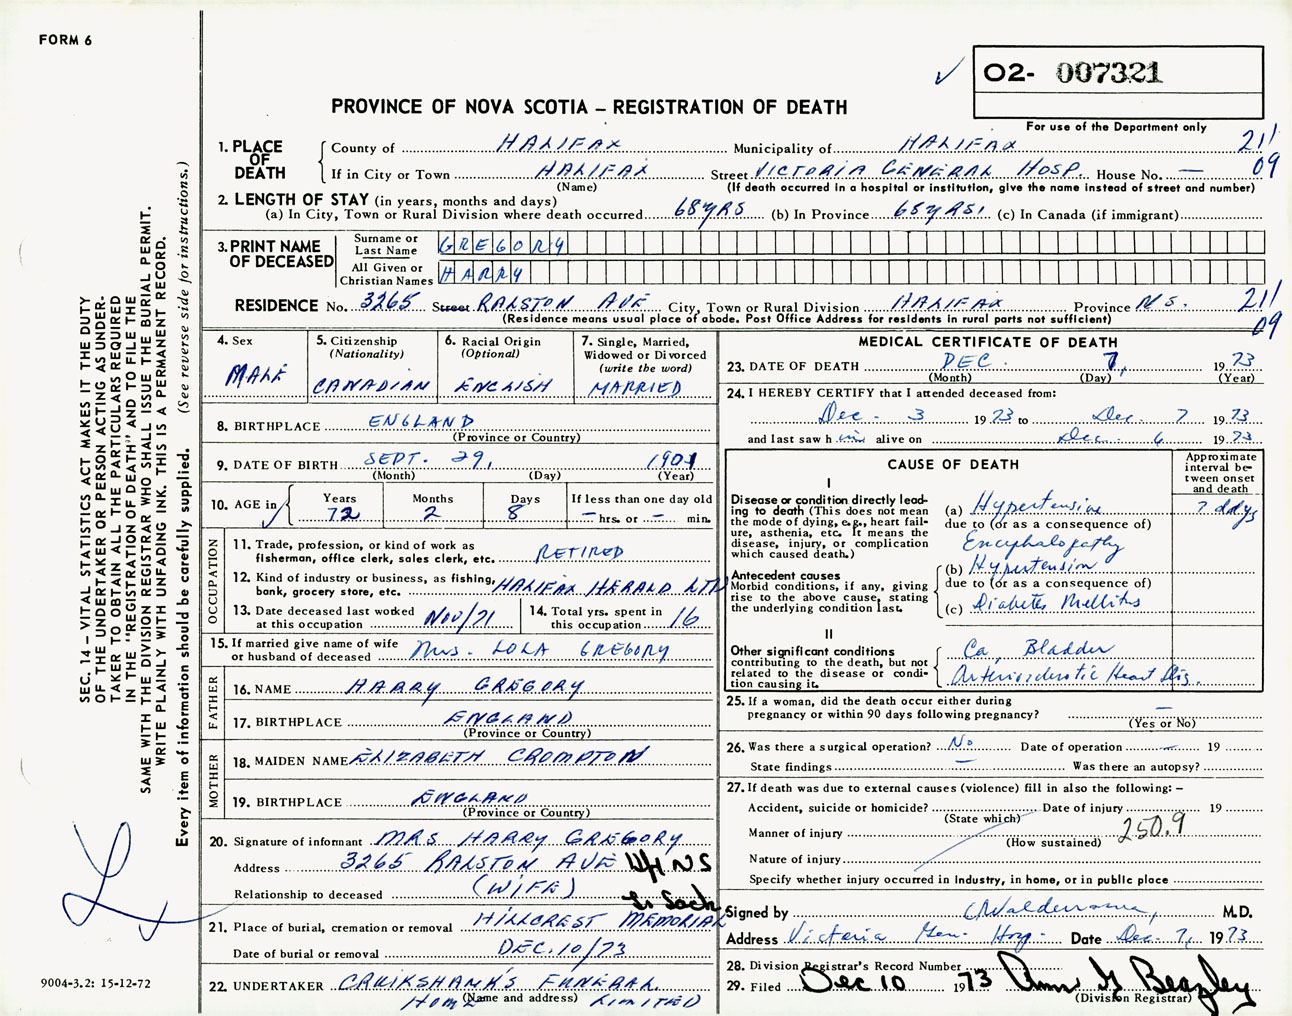 FORM 6
02- 007321
PROVINCE OF NOVA SCOTIA – REGISTRATION OF DEATH
For use of the Department only
1. PLACE OF DEATH
County of HALIFAX Municipality of HALIFAX 211
If in City or Town HALIFAX Street VICTORIA GENERAL HOSP. House No. — 09
(Name) (If death occurred in a hospital or institution, give the name instead of street and number)
2. LENGTH OF STAY (in years, months and days)
(a) In City, Town or Rural Division where death occurred 68 YRS (b) In Province 68 YRS. (c) In Canada (if immigrant)
3. PRINT NAME OF DECEASED
Surname or Last Name GREGORY
All Given or Christian Names HARRY
RESIDENCE No. 3265 Street RALSTON AVE City, Town or Rural Division HALIFAX Province N.S. 211
(Residence means usual place of abode. Post Office Address for residents in rural parts not sufficient) 09
4. Sex MALE
5. Citizenship (Nationality) CANADIAN
6. Racial Origin (Optional) ENGLISH
7. Single, Married, Widowed or Divorced (write the word) MARRIED
8. BIRTHPLACE ENGLAND
(Province or Country)
9. DATE OF BIRTH SEPT. 29, 1901
(Month) (Day) (Year)
10. AGE in Years 72 Months 2 Days 8 If less than one day old – hrs. or – min.
OCCUPATION
11. Trade, profession, or kind of work as fisherman, office clerk, sales clerk, etc. RETIRED
12. Kind of industry or business, as fishing, bank, grocery store, etc. HALIFAX HERALD LTD
13. Date deceased last worked at this occupation NOV/71
14. Total yrs. spent in this occupation 16
15. If married give name of wife or husband of deceased Mrs. LOLA GREGORY
FATHER
16. NAME HARRY GREGORY
17. BIRTHPLACE ENGLAND
(Province or Country)
MOTHER
18. MAIDEN NAME ELIZABETH CROMPTON
19. BIRTHPLACE ENGLAND
(Province or Country)
20. Signature of informant MRS HARRY GREGORY
Address 3265 RALSTON AVE NS
Relationship to deceased (WIFE)
21. Place of burial, cremation or removal HILLCREST MEMORIAL
Date of burial or removal DEC. 10/73
22. UNDERTAKER CRUIKSHANK'S FUNERAL
HOME LIMITED
(Name and address)
MEDICAL CERTIFICATE OF DEATH
23. DATE OF DEATH DEC. 7, 1973
(Month) (Day) (Year)
24. I HEREBY CERTIFY that I attended deceased from:
Dec. 3 1973 to Dec. 7 1973
and last saw him alive on Dec. 6 1973
CAUSE OF DEATH
Approximate interval between onset and death
I
Disease or condition directly leading to death (This does not mean the mode of dying, e.g., heart failure, asthenia, etc. It means the disease, injury, or complication which caused death.)
(a) Hypertensive ? days
due to (or as a consequence of)
Encephalopathy
(b) Hypertension
due to (or as a consequence of)
(c) Diabetes Mellitus
Antecedent causes
Morbid conditions, if any, giving rise to the above cause, stating the underlying condition last.
II
Other significant conditions contributing to the death, but not related to the disease or condition causing it.
Ca, Bladder
Arteriosclerotic Heart Dis.
25. If a woman, did the death occur either during pregnancy or within 90 days following pregnancy? –
(Yes or No)
26. Was there a surgical operation? No Date of operation — 19
State findings – Was there an autopsy?
27. If death was due to external causes (violence) fill in also the following: –
Accident, suicide or homicide? Date of injury 19
(State which)
Manner of injury 250.9
(How sustained)
Nature of injury
Specify whether injury occurred in industry, in home, or in public place
Signed by M.D.
Address Victoria Gen. Hosp. Date Dec. 7, 1973
28. Division Registrar's Record Number
29. Filed Dec 10 1973 Ann G Beazley
(Division Registrar)
SEC. 14 – VITAL STATISTICS ACT MAKES IT THE DUTY
OF THE UNDERTAKER OR PERSON ACTING AS UNDER-
TAKER TO OBTAIN ALL THE PARTICULARS REQUIRED
IN THE "REGISTRATION OF DEATH" AND TO FILE THE
SAME WITH THE DIVISION REGISTRAR WHO SHALL ISSUE THE BURIAL PERMIT.
WRITE PLAINLY WITH UNFADING INK. THIS IS A PERMANENT RECORD.
Every item of information should be carefully supplied. (See reverse side for instructions.)
9004-3.2: 15-12-72